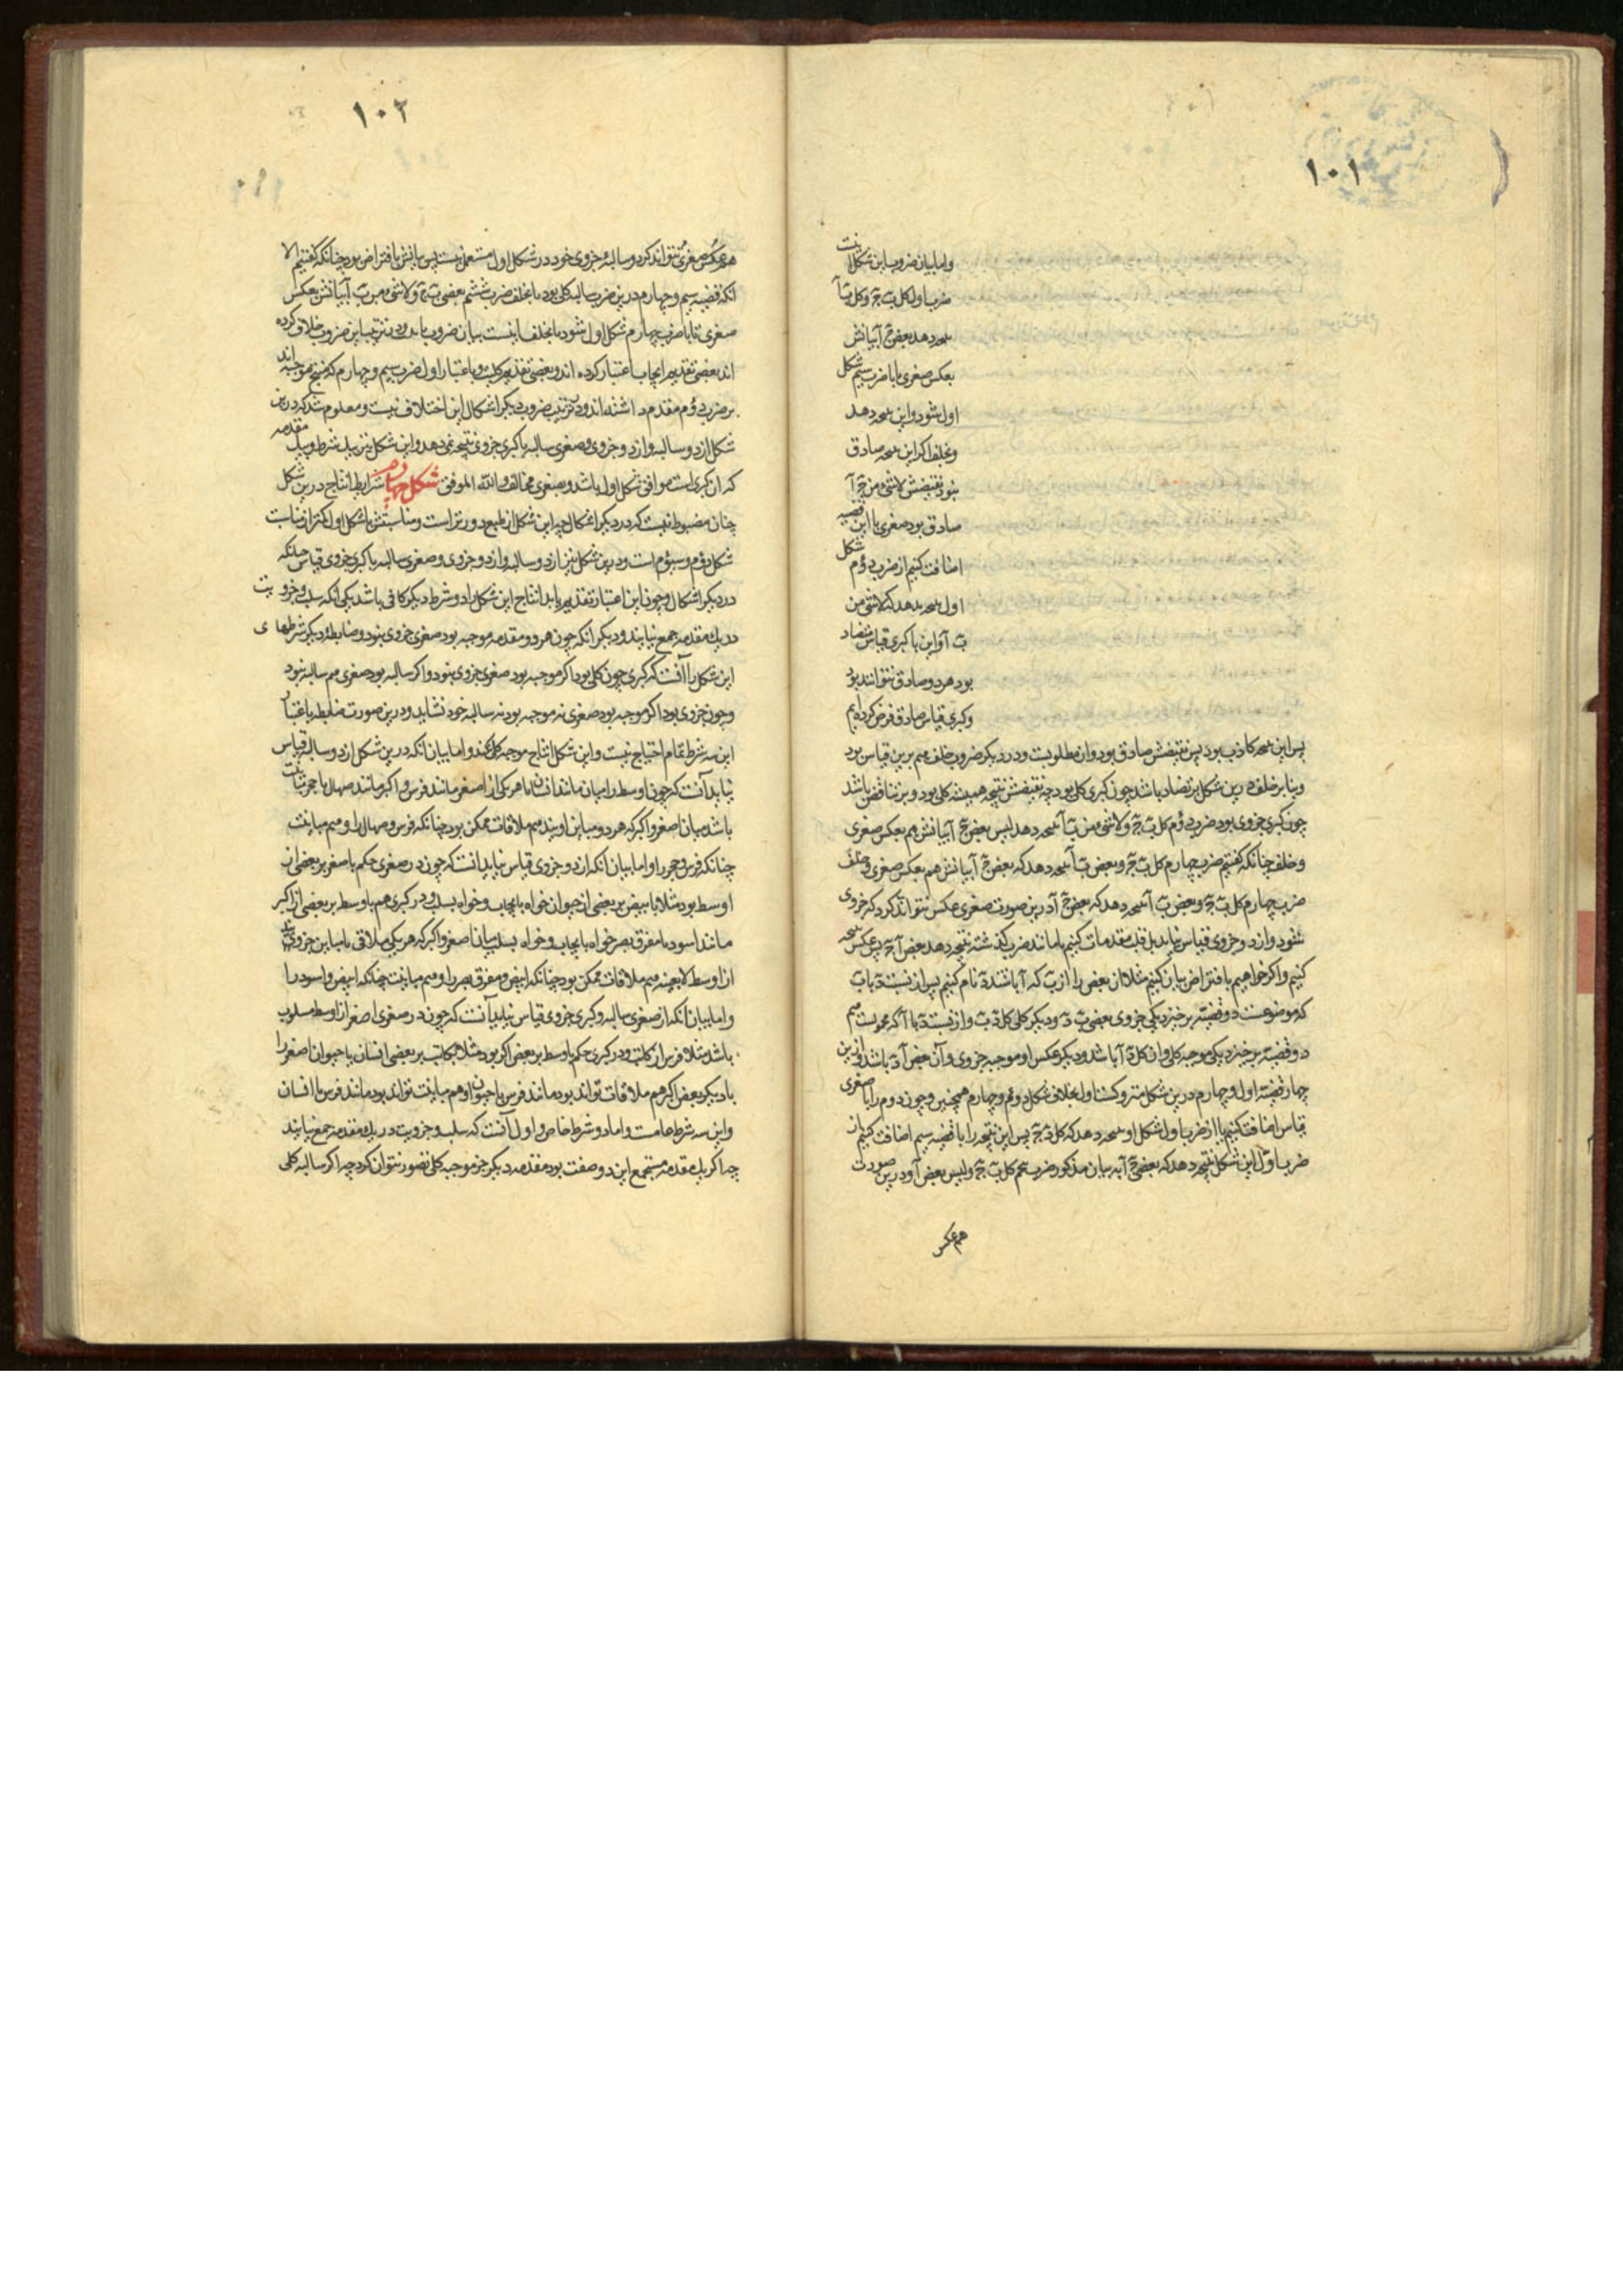 ١٠١
واما بیان ضروب این شکل اینست
ضرب اول کل ب ج و کل ب آ
نتیجه دهد بعض ج آ بیانش
بعکس صغری تا با ضرب سیم شکل
اول شود و این نتیجه دهد
و بخلف اگر این نتیجه صادق
نبود نقیضش لاشئ من ج آ
صادق بود صغری با این قضیه
اضافت کنیم از ضرب دوم شکل
اول نتیجه بدهد که لاشئ من
ب آ و این با کبری قیاس متضاد
بود هر دو صادق نتوانند بود
و کبری قیاس صادق فرض کرده ایم
پس این نتیجه کاذب بود پس نقیضش صادق بود و آن مطلوبست و در دیگر ضروب خلف هم برین قیاس بود
و بنا بر خلف درین شکل بر تضاد باشد چون کبری کلی بود چه نقیضش نتیجه همیشه کلی بود و بر تناقض باشد
چون کبری جزوی بود ضرب دوم کل ب ج و لاشئ من ب آ نتیجه دهد لیس بعض ج آ بیانش هم بعکس صغری
و خلف چنانکه گفتیم ضرب چهارم کل ب ج و بعض ب آ نتیجه دهد که بعض ج آ بیانش هم بعکس صغری و خلف
ضرب چهارم کل ب ج و بعض ب آ نتیجه دهد که بعض ج آ درین صورت صغری عکس نتواند کرد که جزوی
شود و از دو جزوی قیاس نیاید بل قلب مقدمات کنیم تا مانند ضرب گذشته نتیجه دهد بعض آ ج پس عکس نتیجه
کنیم و اگر خواهیم بافتراض بیان کنیم مثلا آن بعض را از ب که آ باشد د نام کنیم پس از نسبت د با ب
که موضوعست دو قضیه برخیزد یکی جزوی بعضی ب د و دیگر کلی کل د ب و از نسبت د با آ که محمولست هم
دو قضیه برخیزد یکی موجبه کلی و آن کل د آ باشد و دیگر عکس او موجبه جزوی و آن بعض آ د باشد و ازین
چهار قضیه اول و چهارم درین شکل متروکست اول بخلاف شکل دوم و چهارم همچنین و چون دوم را با صغری
قیاس اضافت کنیم تا از ضرب اول شکل او نتیجه دهد که کل د ج پس این نتیجه را با قضیه سیم اضافت کنیم از
ضرب اول این شکل نتیجه دهد که بعضی ج آ به بیان مذکور ضرب پنجم کل ب ج و لیس بعض آ و درین صورت
هم عکس
١٠٢
هم عکس صغری نتواند کرد و سالبه جزوی خود در شکل اول مستعمل نیست پس بیانش بافتراض بود چنانکه گفتیم الا
آنکه قضیه سیم و چهارم درین ضرب سالبه کلی بود یا بخلف ضرب ششم بعضی ب ج و لاشئ من ب آ بیانش بعکس
صغری تا با ضرب چهارم شکل اول شود یا بخلف اینست بیان ضروب و در ترتیب این ضروب خلاف کرده
اند بعضی تقدیم ایجاب اعتبار کرده اند و بعضی تقدیم کلیت و باعتبار اول ضرب سیم و چهارم که منتج موجبه اند
بر ضرب دوم مقدم داشته اند و در ترتیب ضروب دیگر اشکال این اختلاف نیست و معلوم شد که درین
شکل از دو سالبه و از دو جزوی و صغری سالبه با کبری جزوی نتیجه نمی دهد و این شکل نیز بیک شرط و بیک مقدمه
که آن کبری است موافق شکل اول باشد و بصغری مخالف والله الموفق شکل چهارم شرایط انتاج درین شکل
چنان مضبوط نیست که در دیگر اشکال چه این شکل از طبع دورتر است و مناسبتش با شکل اول کمتر از مناسبت
شکل دوم و سیوم است و درین شکل نیز از دو سالبه و از دو جزوی و صغری سالبه با کبری جزوی قیاس نیاید چنانکه
در دیگر اشکال و چون این اعتبار تقدیم یابد انتاج این شکل را دو شرط دیگر کافی باشد یکی آنکه سلب و جزویت
در یک مقدمه جمع نیایند و دیگر آنکه چون هر دو مقدمه موجبه بود صغری جزوی نبود و ضابطه دیگر شرطهای
این شکل را آنست که کبری چون کلی بود اگر موجبه بود صغری جزوی نبود و اگر سالبه بود صغری هم سالبه نبود
و چون جزوی بود اگر موجبه بود صغری نه موجبه بود نه سالبه خود نشاید و درین صورت ضابطه باعتبار
این سه شرط تمام احتیاج نیست و این شکل انتاج موجبه کلی نکند و اما بیان آنکه درین شکل از دو سالبه قیاس
نیاید آنست که چون اوسط را میان مانند انسان با هر یکی از اصغر مانند فرس و اکبر مانند صهال یا حجر مباینت
باشد میان اصغر و اکبر که هر دو مباین اویند هم ملاقات ممکن بود چنانکه فرس و صهال را و هم مباینت
چنانکه فرس و حجر را و اما بیان آنکه از دو جزوی قیاس نیاید آنست که چون در صغری حکم باصغر بر بعضی از
اوسط بود مثلا بابیض بر بعضی از حیوان خواه بایجاب و خواه بسلب و در کبری هم باوسط بر بعضی از اکبر
مانند اسود یا مفرق بصر خواه بایجاب و خواه بسلب میان اصغر و اکبر که هر یکی ملاقی یا مباین جزوی باشد
از اوسط لابعینه هم ملاقات ممکن بود چنانکه ابیض و مفرق بصر را و هم مباینت چنانکه ابیض و اسود را
و اما بیان آنکه از صغری سالبه و کبری جزوی قیاس نیاید آنست که چون در صغری اصغر از اوسط مسلوب
باشد مثلا فرس از کاتب و در کبری حکم باوسط بر بعض اکبر بود مثلا بکاتب بر بعضی انسان یا حیوان اصغر را
با دیگر بعض اکبر هم ملاقات تواند بود مانند فرس با حیوان و هم مباینت تواند بود مانند فرس با انسان
و این سه شرط عامست و اما دو شرط خاص اول آنست که سلب و جزویت در یک مقدمه جمع نیایند
چه اگر یک مقدمه مستجمع این دو صفت بود مقدمه دیگر جز موجبه کلی تصور نتوان کرد چه اگر سالبه کلی